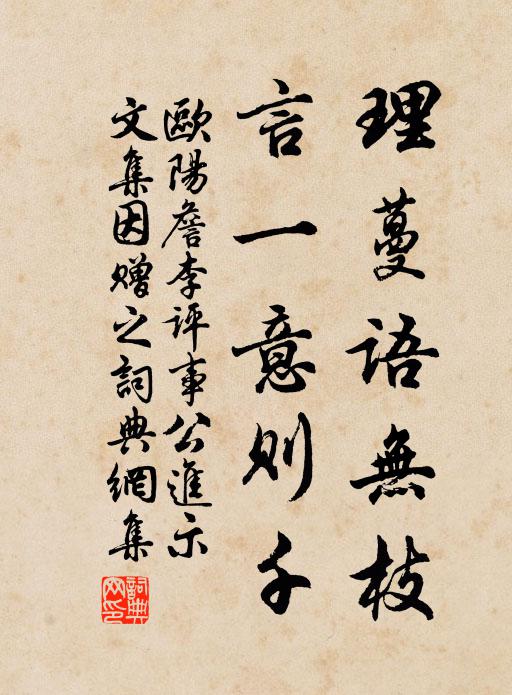 理蔓語無枝
言一意則千
歐陽詹李評事公進示
文集因贈之詞典網集
詞典
网印